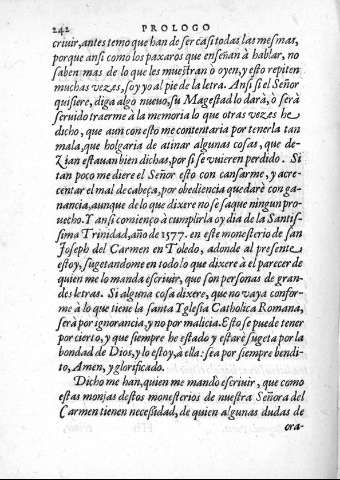 242 PROLOGO
criuir, antes temo que han de ser casi todas las mesmas,
porque ansi como los paxaros que enseñan à hablar, no
saben mas de lo que les muestran ò oyen, y esto repiten
muchas vezes, soy yo al pie de la letra. Ansi si el Señor
quisiere, diga algo nueuo, su Magestad lo darà, ò serà
seruido traerme à la memoria lo que otras vezes he
dicho, que aun con esto me contentaria por tenerla tan
mala, que holgaria de atinar algunas cosas, que de-
zian estauan bien dichas, por si se vuieren perdido. Si
tan poco me diere el Señor esto con cansarme, y acre-
centar el mal de cabeça, por obediencia quedarè con ga-
nancia, aunque de lo que dixere no se saque ningun pro-
uecho. Y ansi comienço à cumplirla oy dia de la Santis-
sima Trinidad, año de 1577. en este monesterio de san
Joseph del Carmen en Toledo, adonde al presente
estoy, sugetandome en todo lo que dixere à el parecer de
quien me lo manda escriuir, que son personas de gran-
des letras. Si alguna cosa dixere, que no vaya confor-
me à lo que tiene la santa Yglesia Catholica Romana,
serà por ignorancia, y no por malicia. Esto se puede tener
por cierto, y que siempre he estado y estarè sugeta por la
bondad de Dios, y lo estoy, à ella: sea por siempre bendi-
to, Amen, y glorificado.
Dicho me han, quien me mandò escriuir, que como
estas monjas destos monesterios de nuestra Señora del
Carmen tienen necessidad, de quien algunas dudas de
ora-